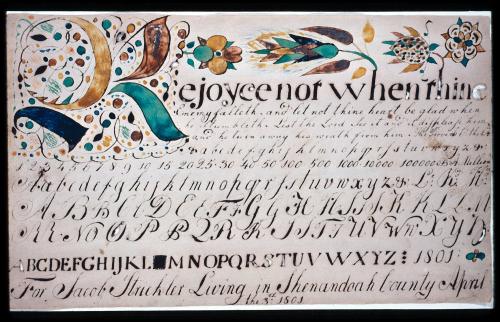 Rejoyce not when thine
enemy falleth, and let not thine heart be glad when
he stumbleth: Lest the Lord see it and it displease him,
and he turn away his wrath from him.
a b c d e f g h i j k l m n o p q r s s t u v w x y z &
1 2 3 4 5 6 7 8 9 10 15 20 25 30 40 50 100 500 1000 10000 100000 A Million
Aabcdefghijklmnopqrſstuvwxyz&
A B C D E F G H I J K L M
N O P Q R S T U V W X Y Z
ABCDEFGHIJKLMNOPQRSTUVWXYZ: 1801:
For Jacob Strickler Living in Shenandoah County April
the 3rd 1801